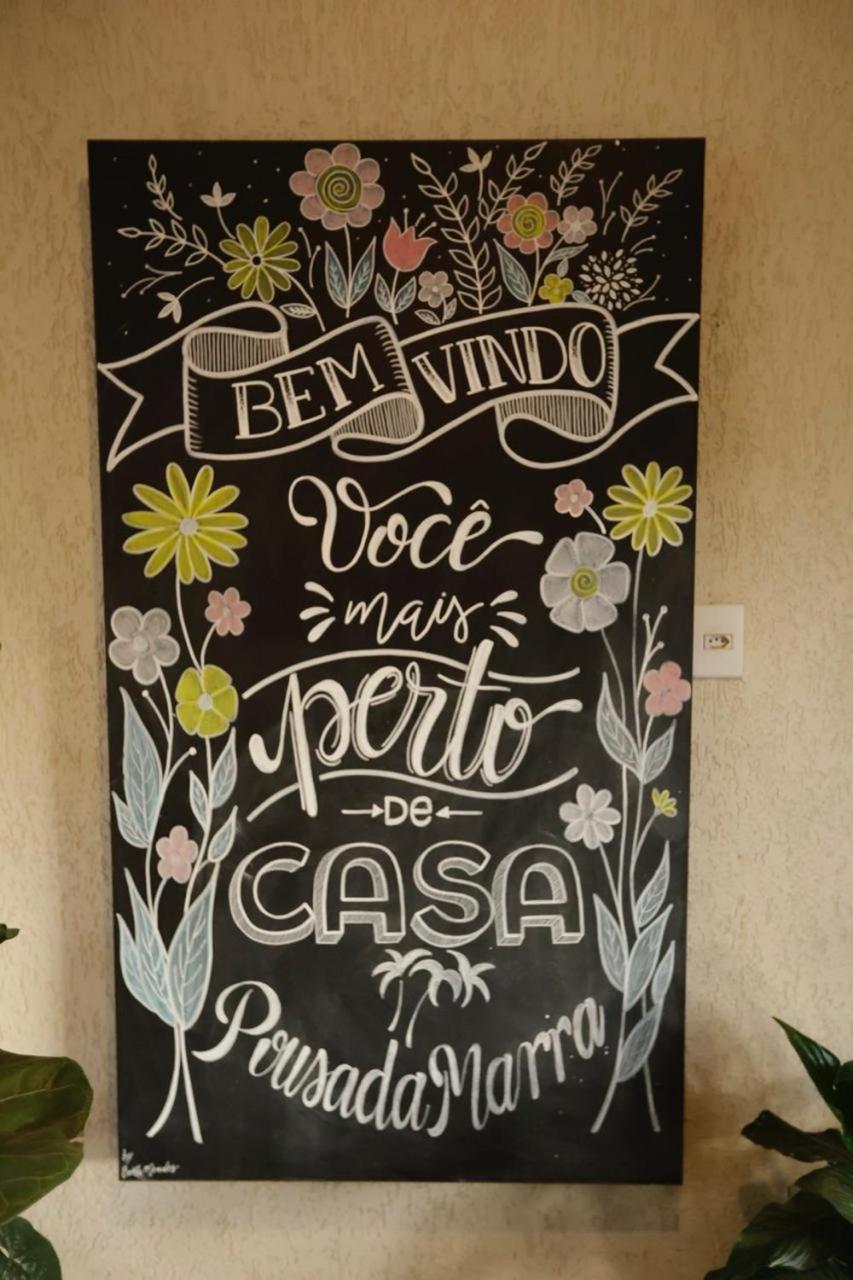 BEM VINDO
Você
mais
perto
DE
CASA
Pousada Marra
by
Mendes